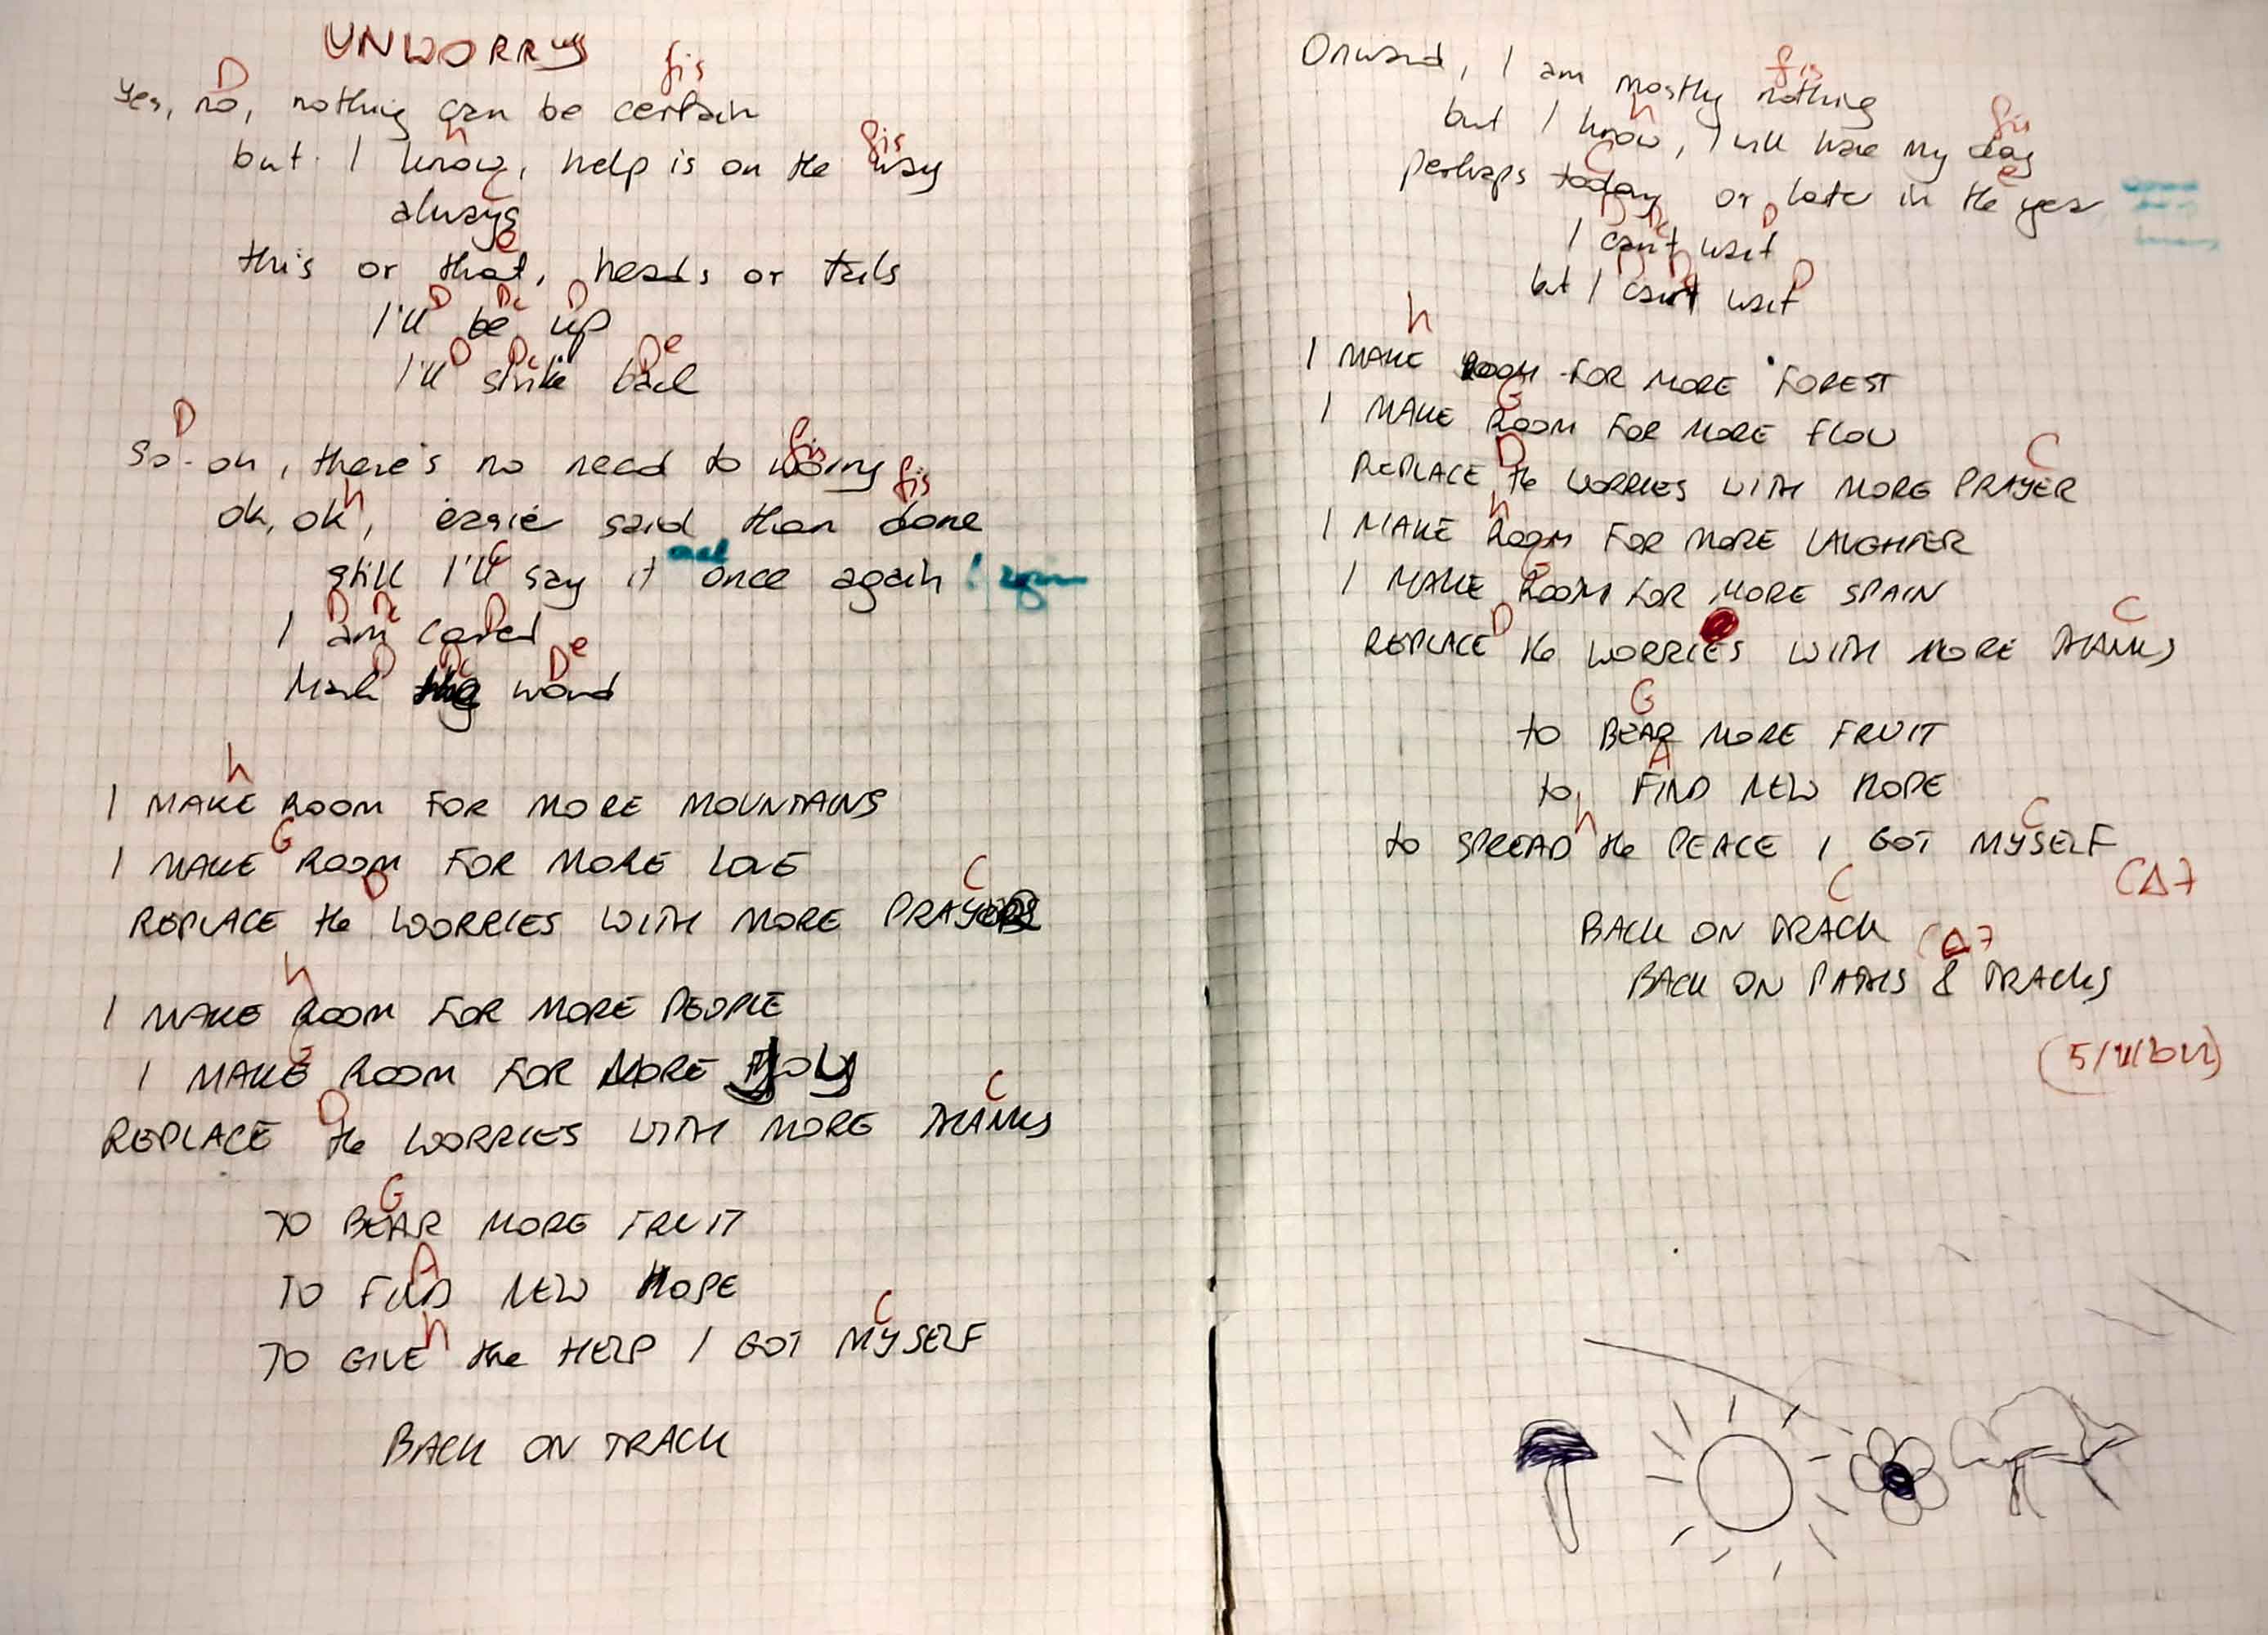 UNWORRY
D fis
Yes, no, nothing can be certain
h fis
but I know, help is on the way
C
always
e
this or that, heads or tails
D Dc D
I'll be up
D Dc D e
I'll strike back
D fis
So-on, there's no need to worry
h fis
ok, ok, easier said than done
C
still I'll say it once again
D Dc D
I am cared
D Dc D e
Mark the word
h
I MAKE ROOM FOR MORE MOUNTAINS
G
I MAKE ROOM FOR MORE LOVE
D C
REPLACE the WORRIES WITH MORE PRAYER
h
I MAKE ROOM FOR MORE PEOPLE
G
I MAKE ROOM FOR MORE JOY
D C
REPLACE the WORRIES WITH MORE THANKS
G
TO BEAR MORE FRUIT
A
TO FIND NEW HOPE
h C
TO GIVE the HELP I GOT MYSELF
BACK ON TRACK
fis
Onward, I am mostly nothing
h fis
but I know, I will have my day
C e
perhaps today or late in the year
D Dc D
I can't wait
D D
but I can't wait
h
I MAKE ROOM FOR MORE FOREST
G
I MAKE ROOM FOR MORE FLOW
D C
REPLACE the WORRIES WITH MORE PRAYER
h
I MAKE ROOM FOR MORE LAUGHTER
G
I MAKE ROOM FOR MORE SPAIN
D C
REPLACE the WORRIES WITH MORE THANKS
G
to BEAR MORE FRUIT
A
to FIND NEW HOPE
h C
to SPREAD the PEACE I GOT MYSELF
C CΔ7
BACK ON TRACK
CΔ7
BACK ON PATHS & TRACKS